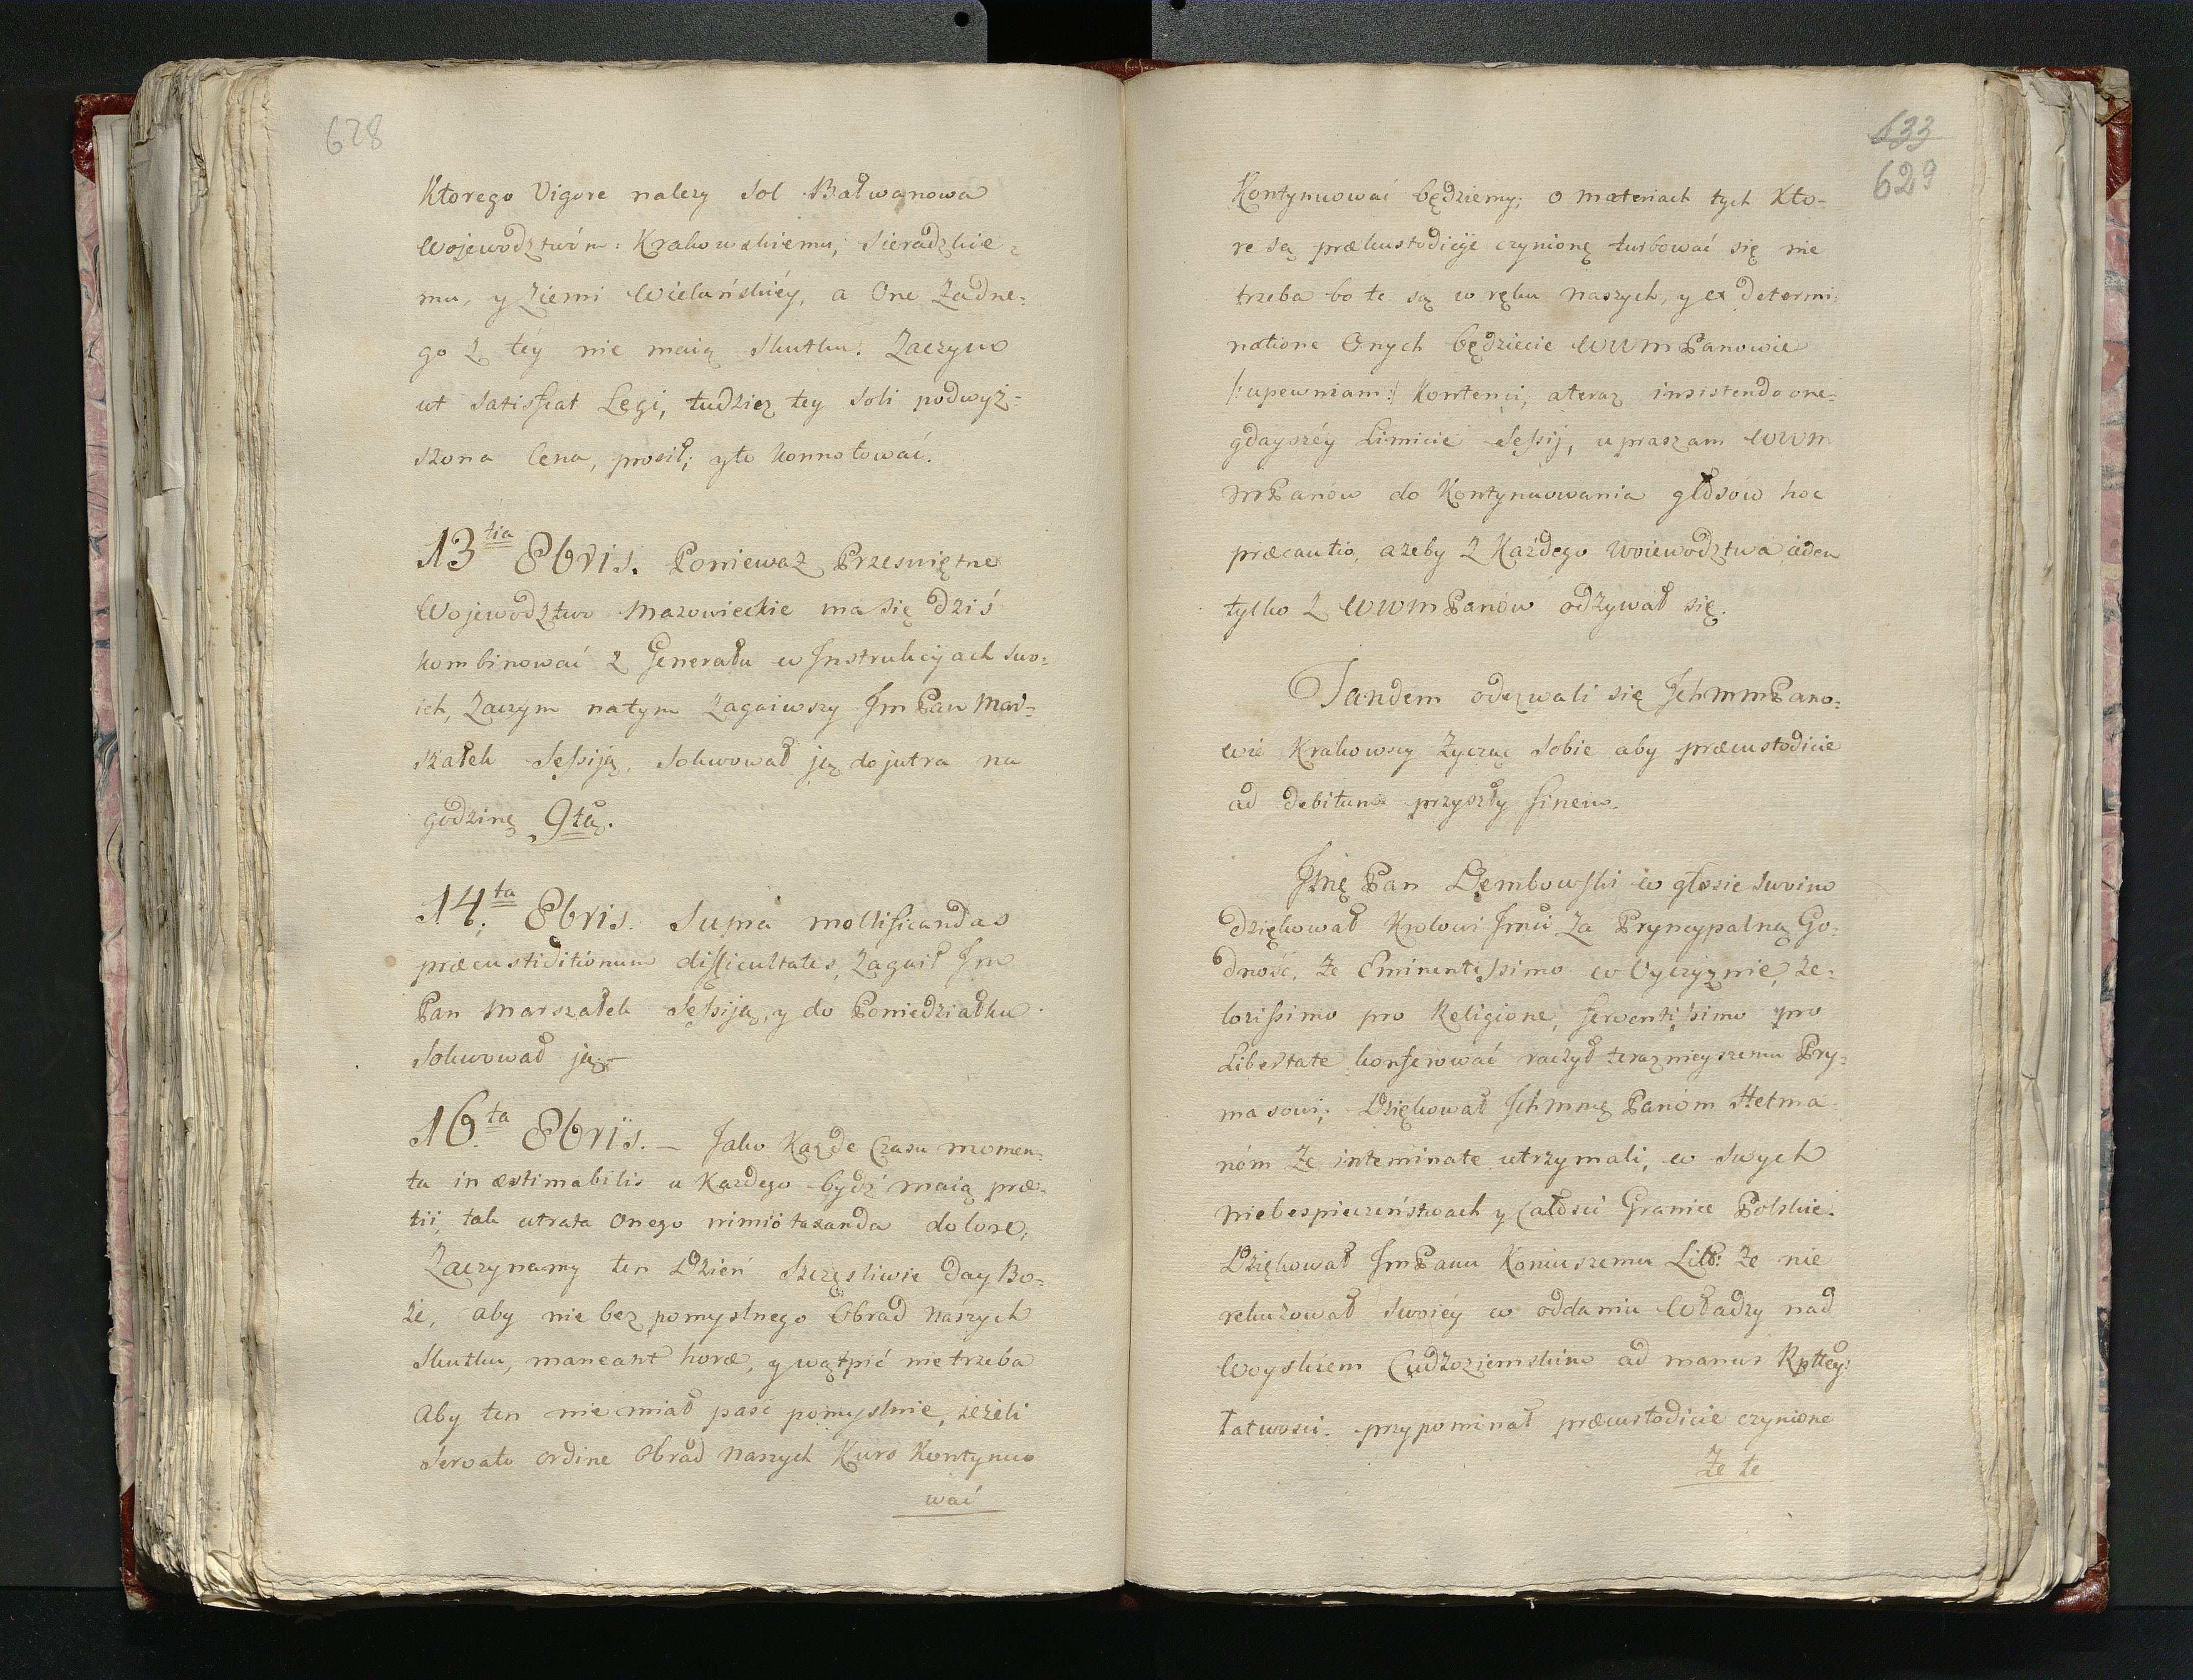 628
Ktorego Vigore nalezy Sol Bałwanowa
Wojewodztwóm: Krakowskiemu, Sieradzkie=
mu, y Ziemi Wieluńskiéy, a One Zadne=
go Z téy nie maią Skutku. Zaczym
ut satisfiat Legi, tudziez tey Soli podwyż=
szona Cena, prosił; yto konnotować.
13tia 8bris. Poniewaz Przeswiętne
Wojewodztwo Mazowieckie ma się dziś
kombinować z Generału w Instrukcyjach swo=
ich, Zaczym natym Zagaiwszy Jm Pan Mar=
szałek Sessiją, Solwował ją do jutra na
godzinę 9tą.
14ta 8bris. Supra mollificandas
præcustiditionum difficultates, Zagaił Jm
Pan Marszałek Sessiją, y do Poniedziałku
Solwował ją.
16ta 8bris. – Jako Kazde Czasu momen=
ta in æstimabilis u Kazdego bydź maią præ=
tii, tak utrata Onego nimió taxanda dolore;
Zaczynamy ten Dzień Szczęsliwie day Bo=
że, aby nie bez pomyslnego Obrad Naszych
Skutku, maneant horæ, y wątpić nie trzeba
Aby ten nie miał paść pomyslnie, jeżeli
Servato Ordine Obrad Naszych Kurs Kontynuo
wać
633
629
Kontynuować będziemy; O materiach tych Kto=
re są prækustodicije czynionę turbować się nie
trzeba bo te są w ręku Naszych, y ex determi=
natione Onych będziecie WWmPanowie
/:upewniam:/ Kontenci, ateraz insistendo one=
gdayszéy Limicie Sessij, upraszam WWM
MPanów do Kontynuowania głosów hoc
præcautio, azeby z Każdego Woiewodztwa ieden
tylko z WWMPanów odzywał się.
Tandem odezwali się IchmmPano=
wie Krakowscy Zycząc Sobie aby præcustodicie
ad debitum przyszły finem.
Jmę Pan Dembowski w głosie Swoim
dziękował Krolowi Jmci Za Pryncypalną Go=
dność, Ze Eminentissimo w Oyczyznie, Ze=
lozissimo pro Religione, ferventissimo pro
Libertate konferować raczył teraznieyszemu Pry=
masowi; Dziękował Ichmmę Panóm Hetma
nóm Ze inteminate utrzymali, w Swych
Niebespieczeństwach y Całości Granice Polskie.
Dziękował JmPanu Koniuszemu Litt: Ze nie
rekuzował Swoiéy w oddaniu Władzy nad
Woyskiem Cudzoziemskim ad manus Rpltey:
Łatwosci. przypominał præcustodicie czynione
Ze te